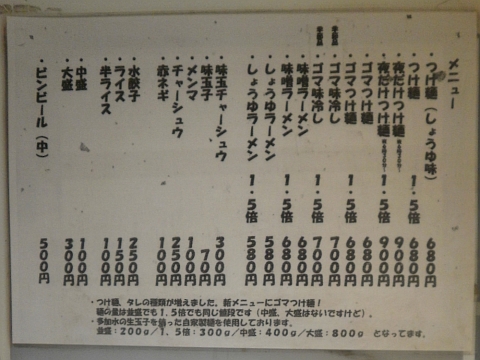 メニュー
・つけ麺(しょうゆ味) 680円
・つけ麺 1.5倍 680円
・夜だけつけ麺 900円
・夜だけつけ麺 1.5倍 900円
・ゴマつけ麺 680円
・ゴマつけ麺 1.5倍 680円
・ゴマ味冷し 700円
・ゴマ味冷し 1.5倍 700円
・味噌ラーメン 680円
・味噌ラーメン 1.5倍 680円
・しょうゆラーメン 580円
・しょうゆラーメン 1.5倍 580円
・味玉チャーシュウ 300円
・味玉子 70円
・メンマ 100円
・チャーシュウ 250円
・赤ネギ 100円
・水餃子 250円
・ライス 150円
・半ライス 100円
・中盛 100円
・大盛 300円
・ビンビール(中) 500円
・つけ麺、タレの種類が増えました。新メニューにゴマつけ麺!
麺の量は並盛でも1.5倍でも同じ値段です(中盛、大盛はないですけど)。
・多加水の生玉子を使った自家製麺を使用しております。
並盛:200g/1.5倍:300g/中盛:400g/大盛:800g となってます。